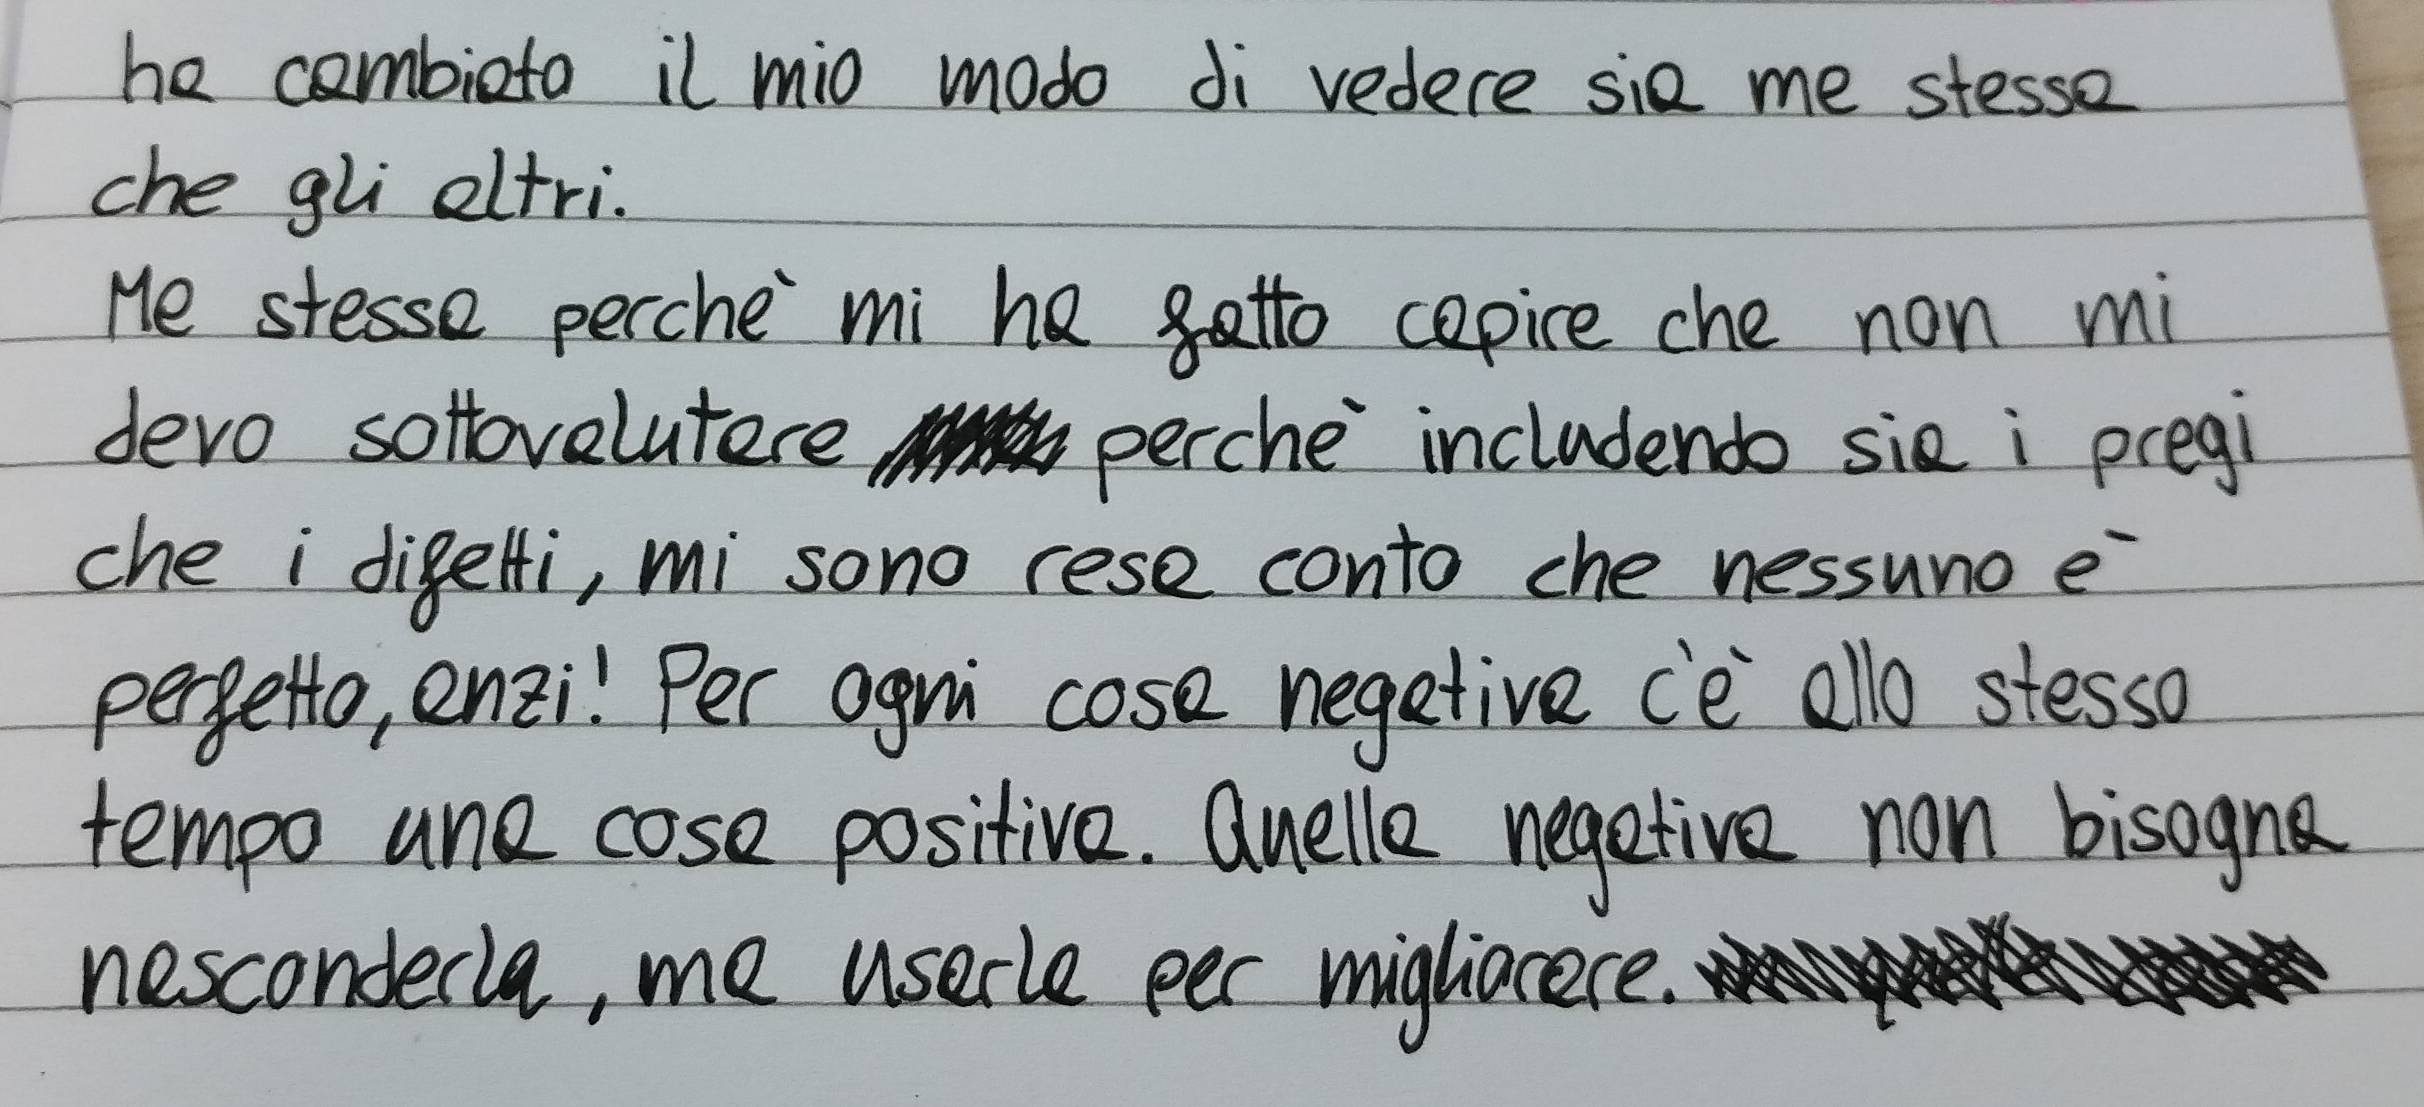 ha cambiato il mio modo di vedere sia me stessa
che gli altri.
Me stessa perchè mi ha fatto capire che non mi
devo sottovalutare perchè includendo sia i pregi
che i difetti, mi sono resa conto che nessuno è
perfetto, anzi! Per ogni cosa negativa c'è allo stesso
tempo una cosa positiva. Quella negativa non bisogna
nasconderla, ma usarla per migliorare.